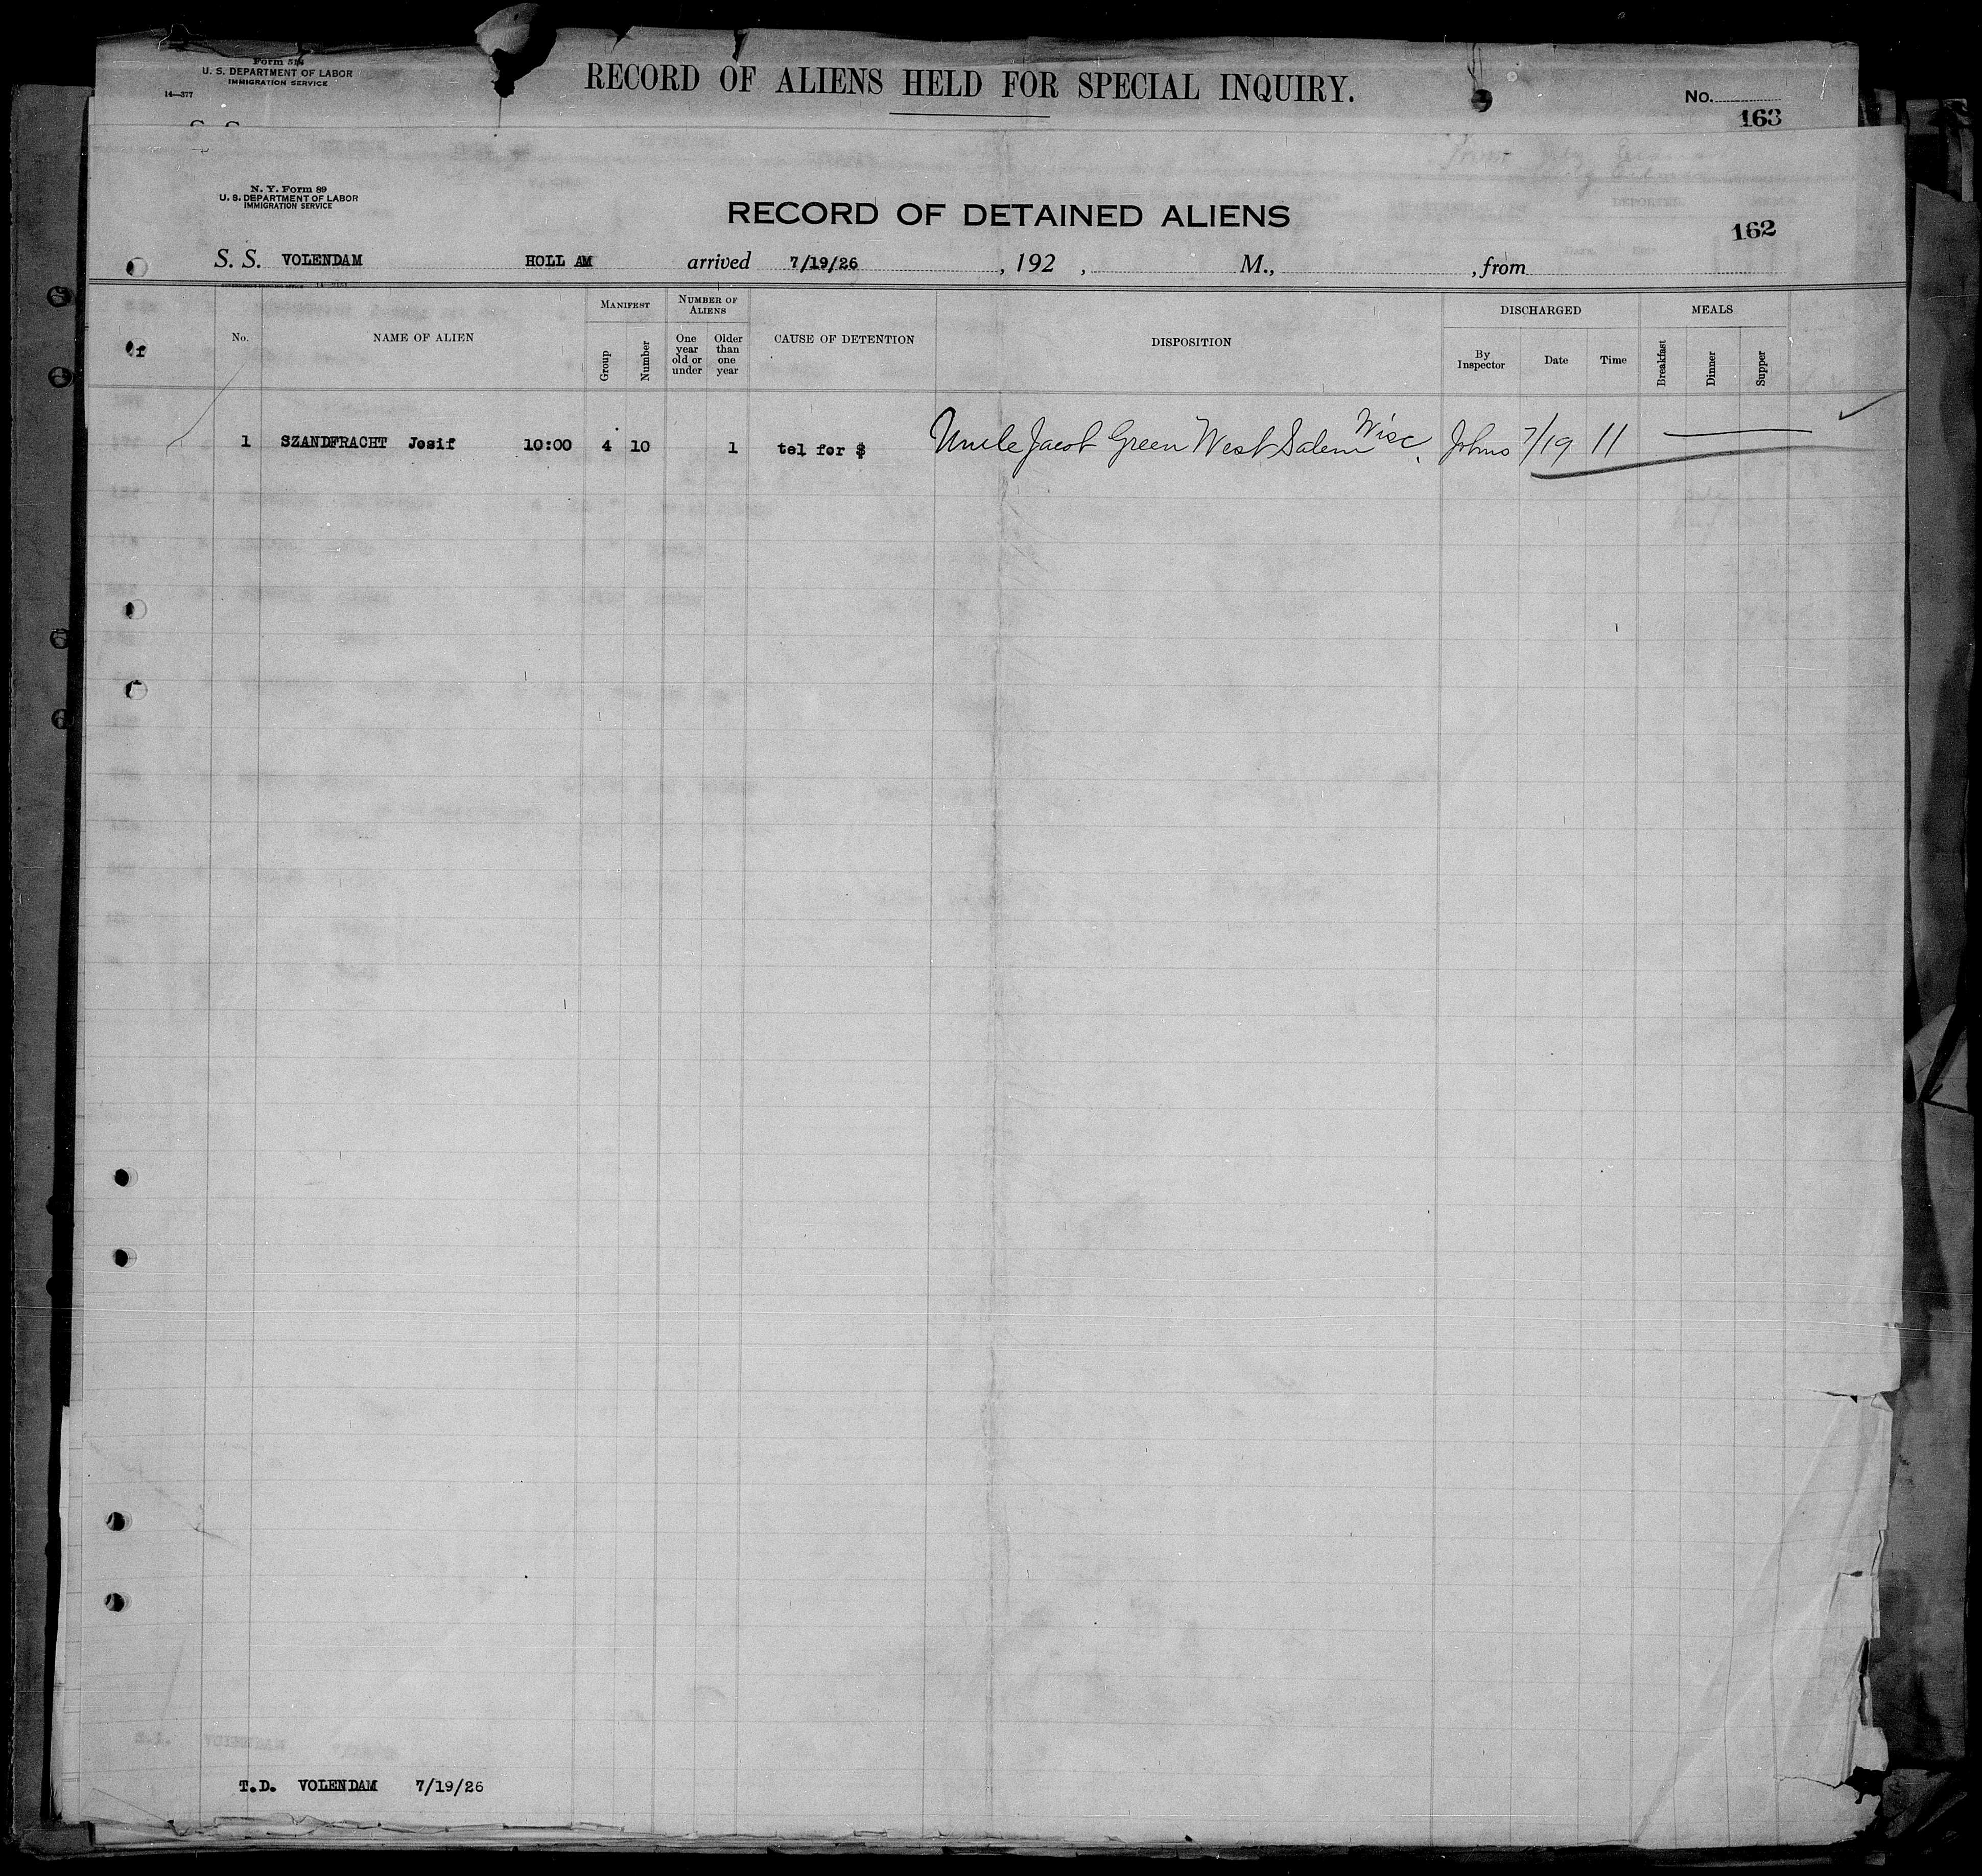 Form 514
U. S. DEPARTMENT OF LABOR
IMMIGRATION SERVICE
14—377
RECORD OF ALIENS HELD FOR SPECIAL INQUIRY.
No.
163
N. Y. Form 89
U. S. DEPARTMENT OF LABOR
IMMIGRATION SERVICE
RECORD OF DETAINED ALIENS
162
S. S. VOLENDAM HOLL AM arrived 7/19/26, 192 , M., , from
No. NAME OF ALIEN MANIFEST Group Number NUMBER OF ALIENS One year old or under Older than one year CAUSE OF DETENTION DISPOSITION DISCHARGED By Inspector Date Time MEALS Breakfast Dinner Supper
1 SZANDFRACHT Josif 10:00 4 10 1 tel for $ Uncle Jacob Green West Salem Wisc. Johns 7/19 11
T.D. VOLENDAM 7/19/26